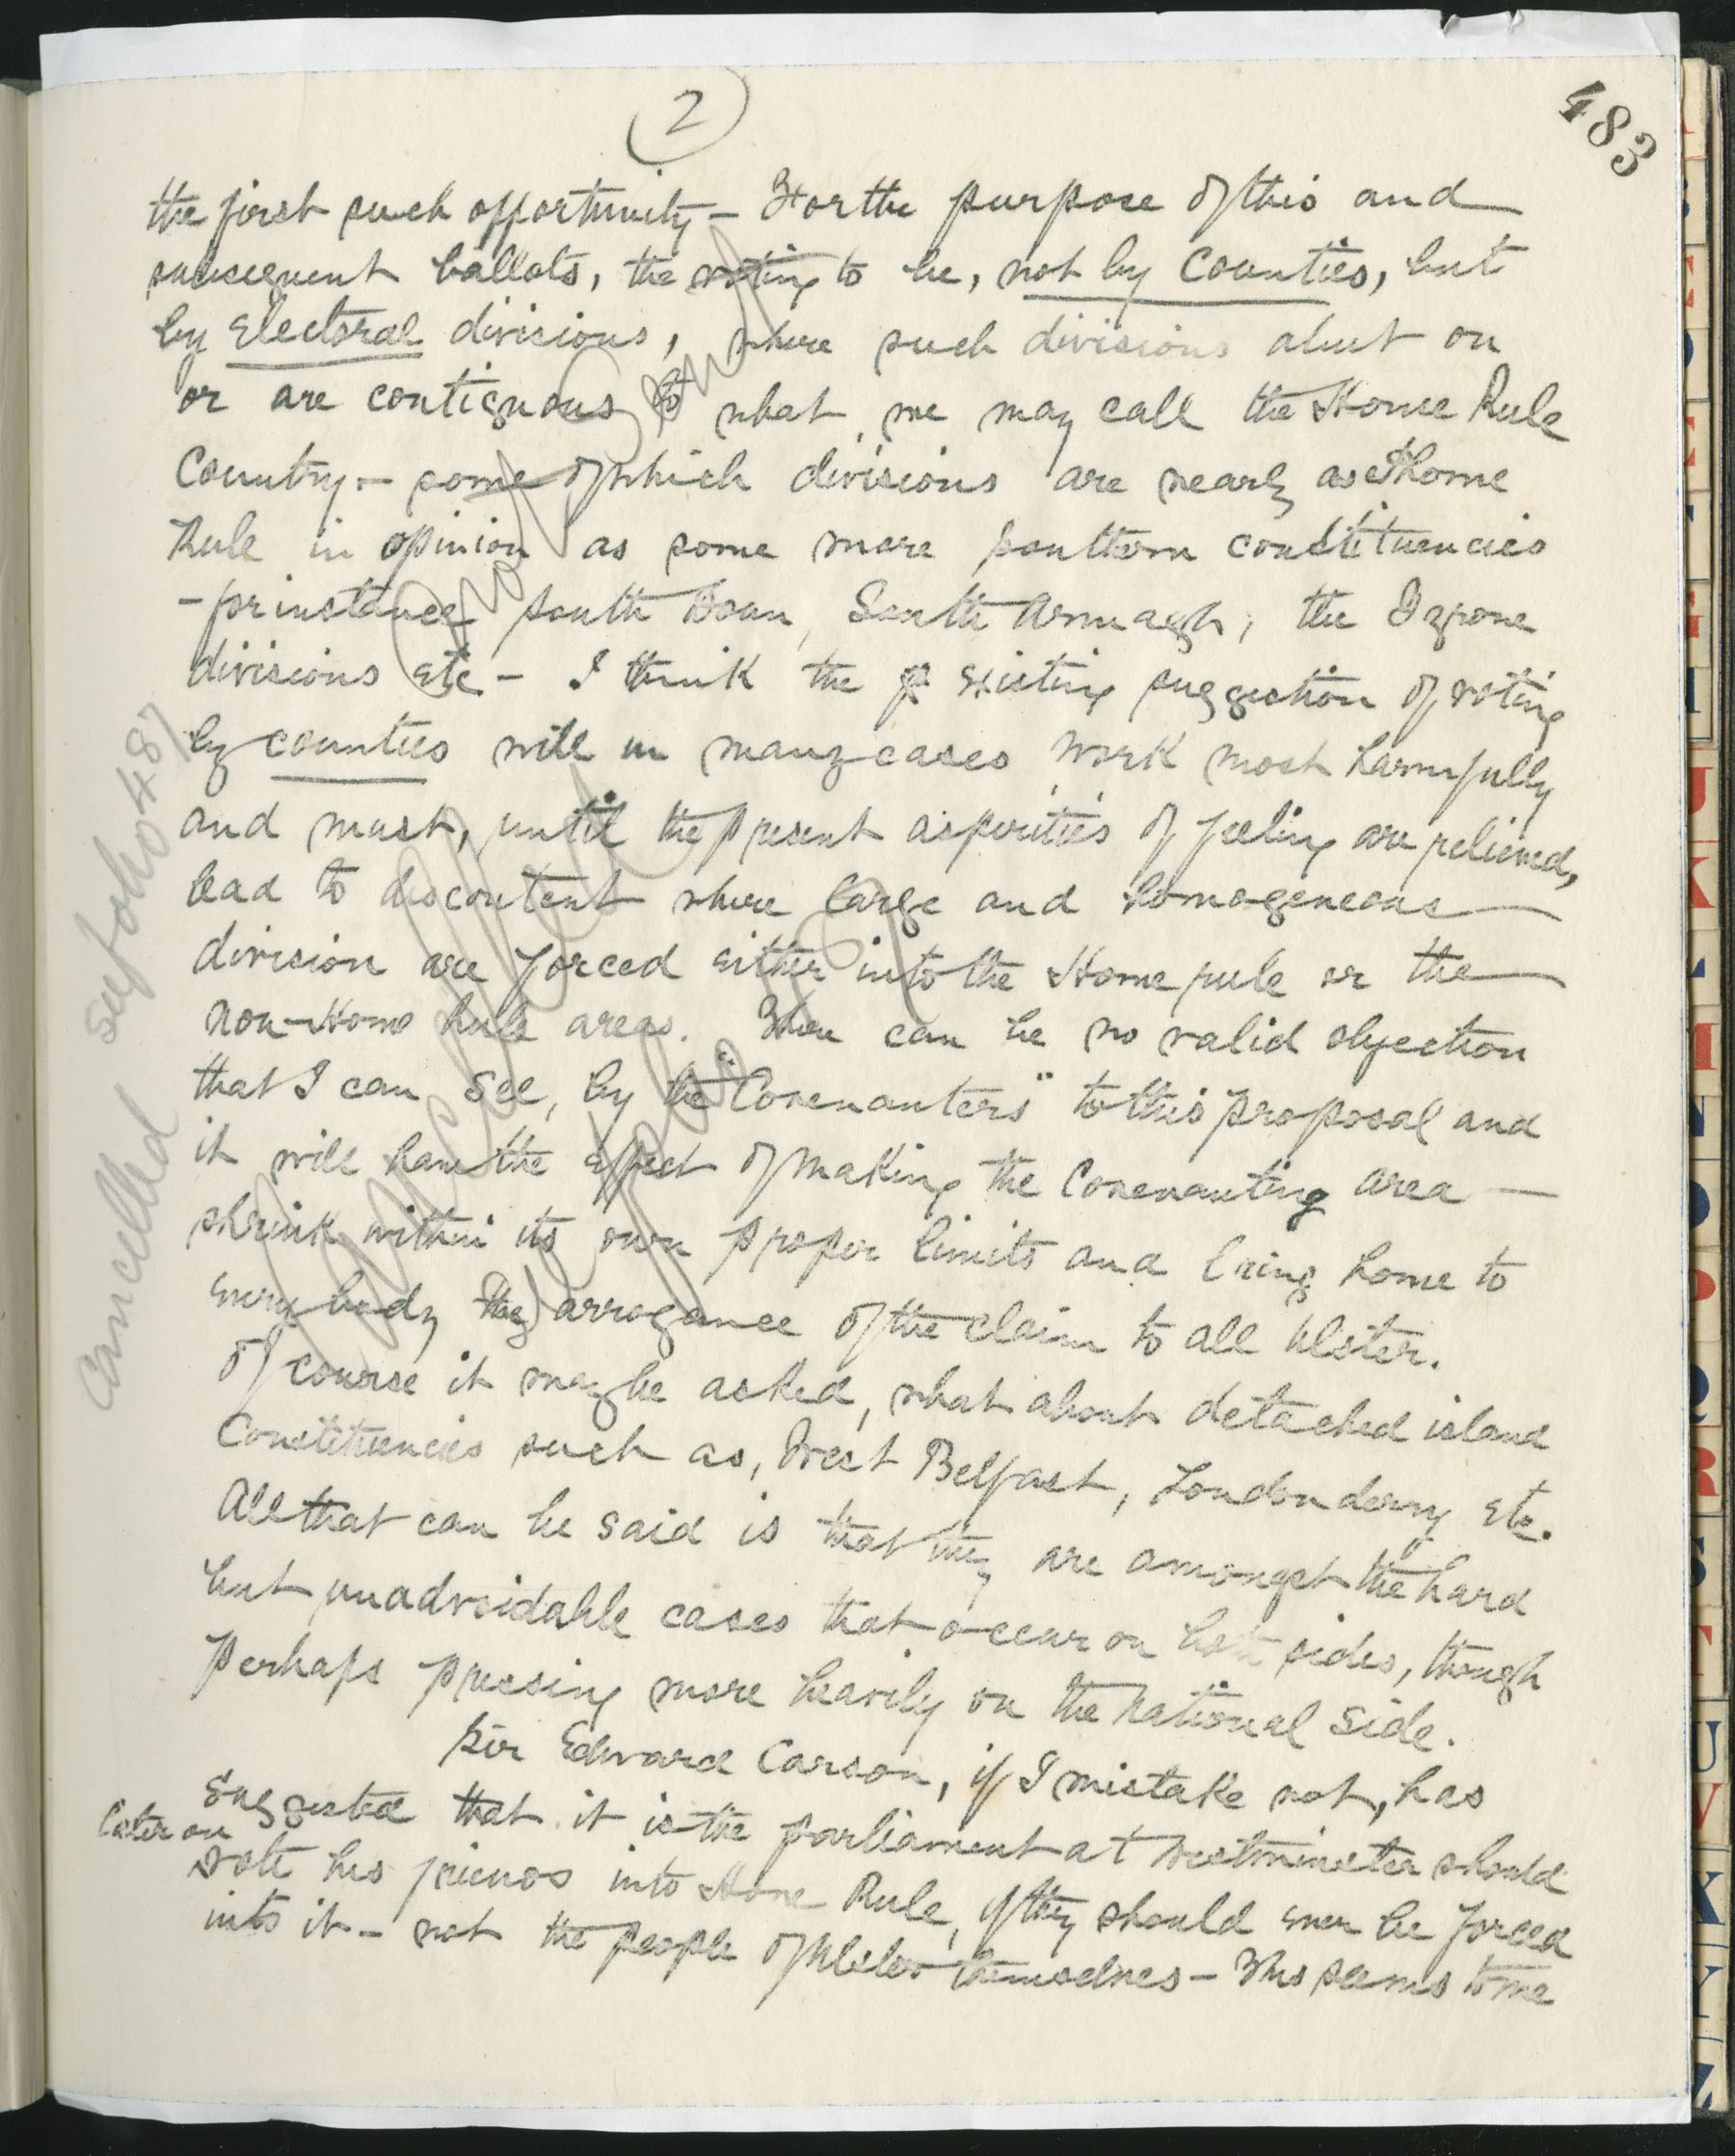 2
483
the first such opportunity – For the purpose of this and
subsequent ballots, the voting to be, not by Counties, but
by Electoral divisions, where such divisions abut on
or are contiguous to what we may call the Home Rule
Country – some of which divisions are nearly as Home
Rule in opinion as some more southern constituencies
– for instance South Down, South Armagh, the Tyrone
divisions etc – I think the existing suggestion of voting
by counties will in many cases work most harmfully
and must, until the present asperities of feeling are relieved,
lead to discontent where large and homogeneous
division are forced either into the Home rule or the
non-Home Rule areas. There can be no valid objection
that I can see, by the "Covenanters" to this proposal and
it will have the effect of making the Covenanting area
shrink within its own proper limits and bring home to
every body the arrogance of the claim to all Ulster.
Of course it may be asked, what about detached island
Constituencies such as, West Belfast, Londonderry etc.
All that can be said is that they are amongst the hard
but unadvoidable cases that occur on both sides, though
perhaps pressing more heavily on the National side.
Sir Edward Carson, if I mistake not, has
suggested that it is the parliament at Westminster should
later on
vote his friends into Home Rule, if they should ever be forced
into it – not the people of Ulster themselves – This seems to me
Cancelled see folio 487
Cancelled